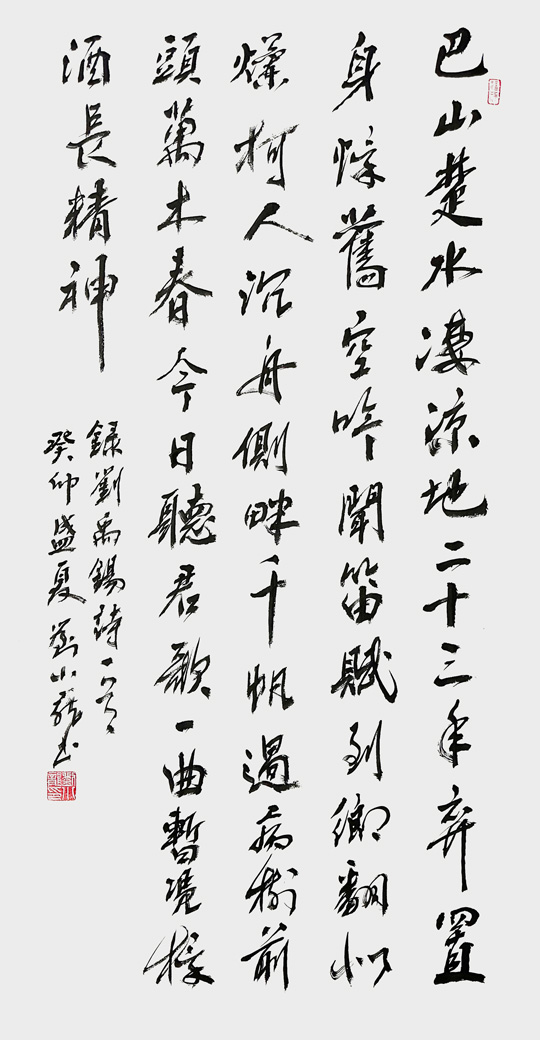 巴山楚水凄涼地二十三年弃置
身懷舊空吟聞笛賦到鄉翻似
爛柯人沉舟側畔千帆過病樹前
頭萬木春今日聽君歌一曲暫凴
酒長精神
録劉禹錫詩一首
癸卯盛夏劉小龍書